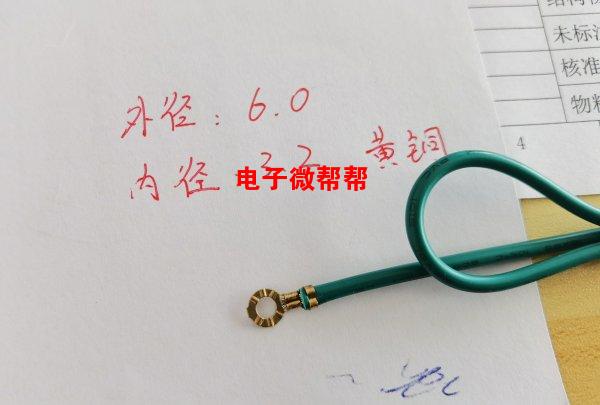 外径：6.0
内径 3.2 黄铜
电子微帮帮
未标注
核准
物料
4